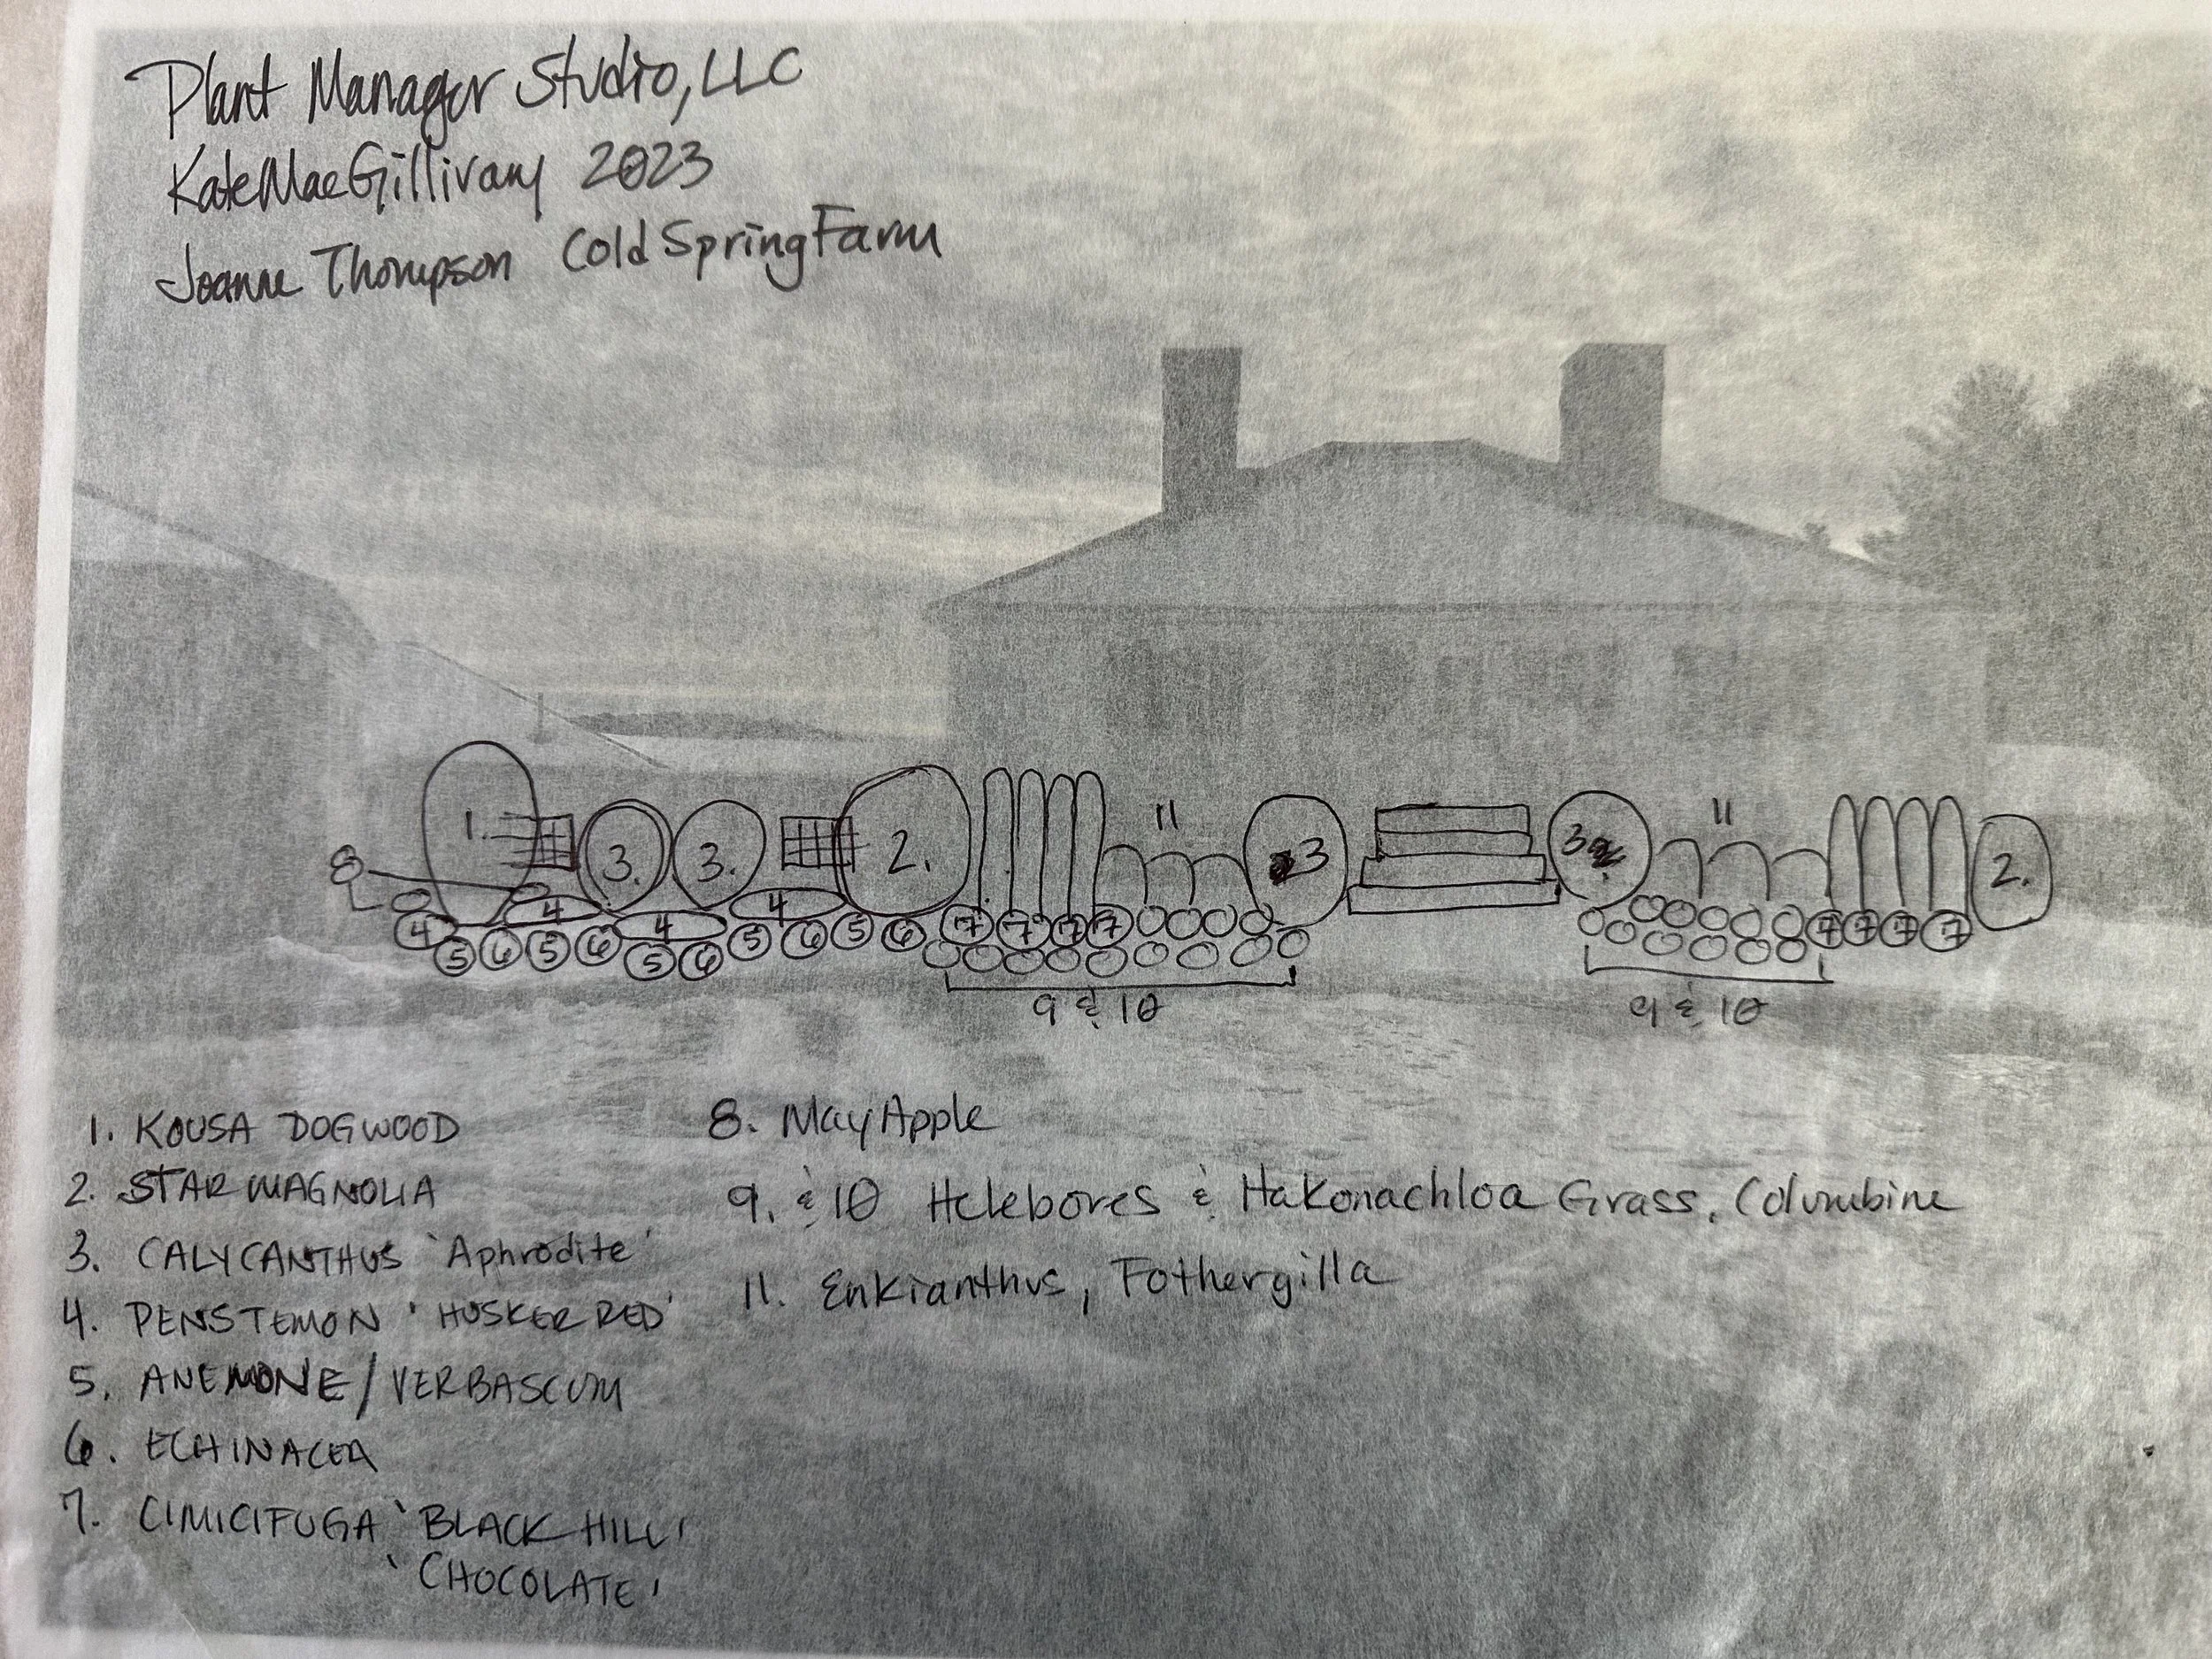 Plant Manager Studio, LLC
Kate MacGillivary 2023
Joanne Thompson Cold Spring Farm
1. 3. 3. 2. 11 3 3 11 2.
8
4 4 4 4
5 6 5 6 5 6 5 6 5 6 7 7 7 7 7 7 7 7
9 & 10 9 & 10
1. KOUSA DOGWOOD
2. STAR MAGNOLIA
3. CALYCANTHUS 'Aphrodite'
4. PENSTEMON 'HUSKER RED'
5. ANEMONE/VERBASCUM
6. ECHINACEA
7. CIMICIFUGA 'BLACK HILL'
'CHOCOLATE'
8. MayApple
9. & 10 Helebores & Hakonachloa Grass, Columbine
11. Enkianthus, Fothergilla